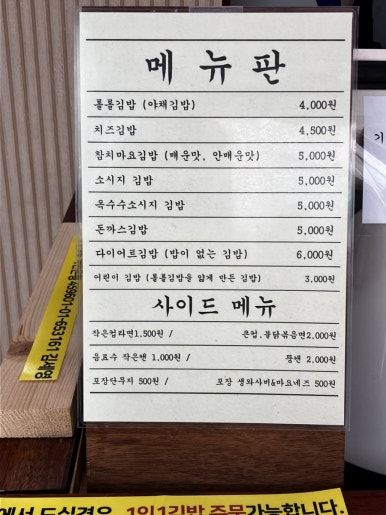 메뉴판
롤롤김밥 (야채김밥) 4,000원
치즈김밥 4,500원
참치마요김밥 (매운맛, 안매운맛) 5,000원
소시지 김밥 5,000원
옥수수소시지 김밥 5,000원
돈까스김밥 5,000원
다이어트김밥 (밥이 없는 김밥) 6,000원
어린이 김밥 (롤롤김밥을 얇게 만든 김밥) 3,000원
사이드 메뉴
작은컵라면1.500원 / 큰컵,불닭볶음면2,000원
음료수 작은캔 1,000원 / 뚱캔 2,000원
포장단무지 500원 / 포장 생와사비&마요네즈 500원
49601-01-653161 김세영
에서 드실경우 1인1김밥 주문가능합니다.
기